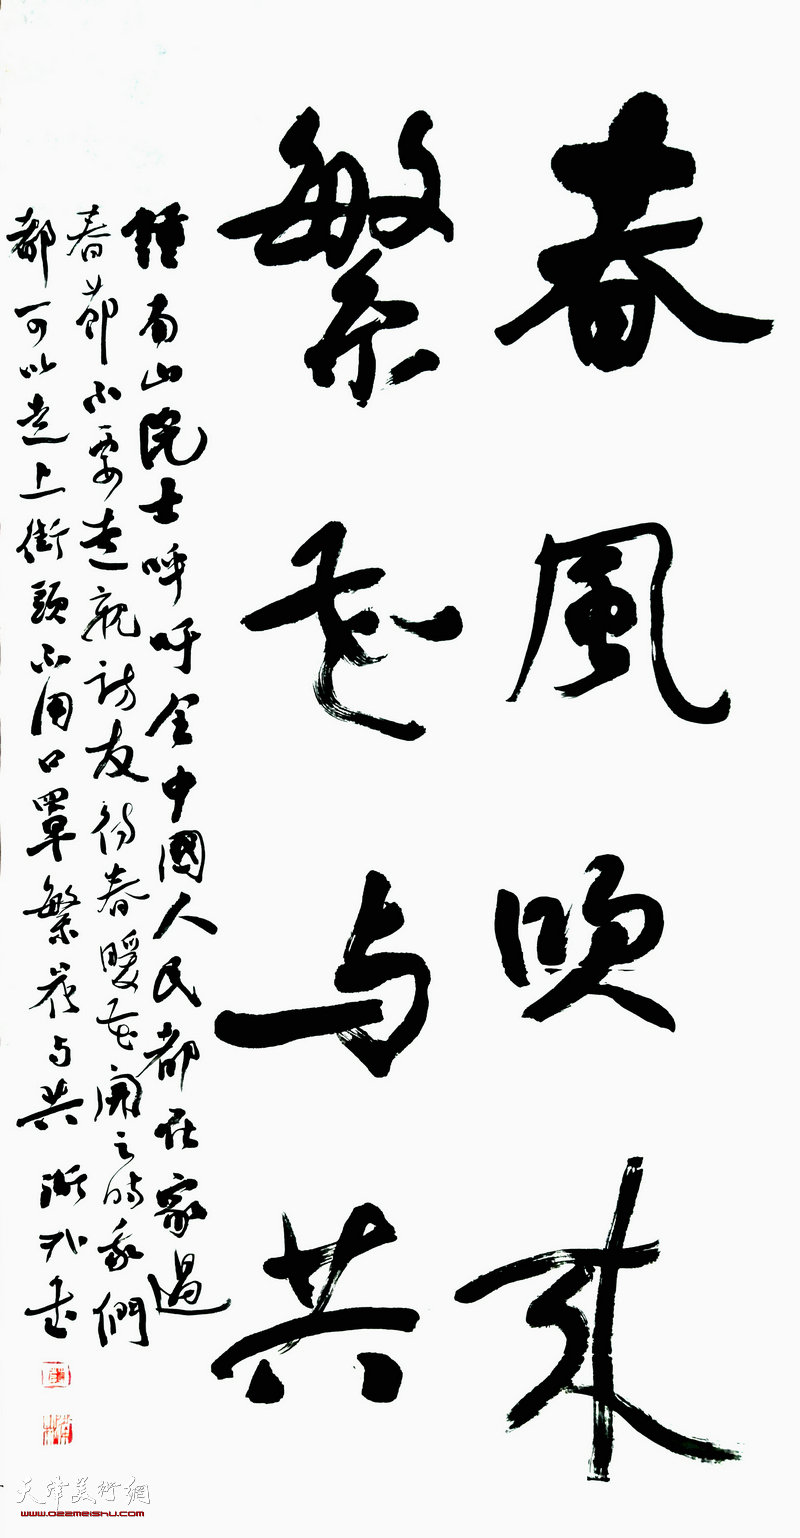 春風吹来
繁花与共
鍾南山院士呼吁全中國人民都在家過
春節不要走親訪友待春暖花開之時我們
都可以走上街頭不用口罩繁花与共
天津美術網
www.022meishu.com